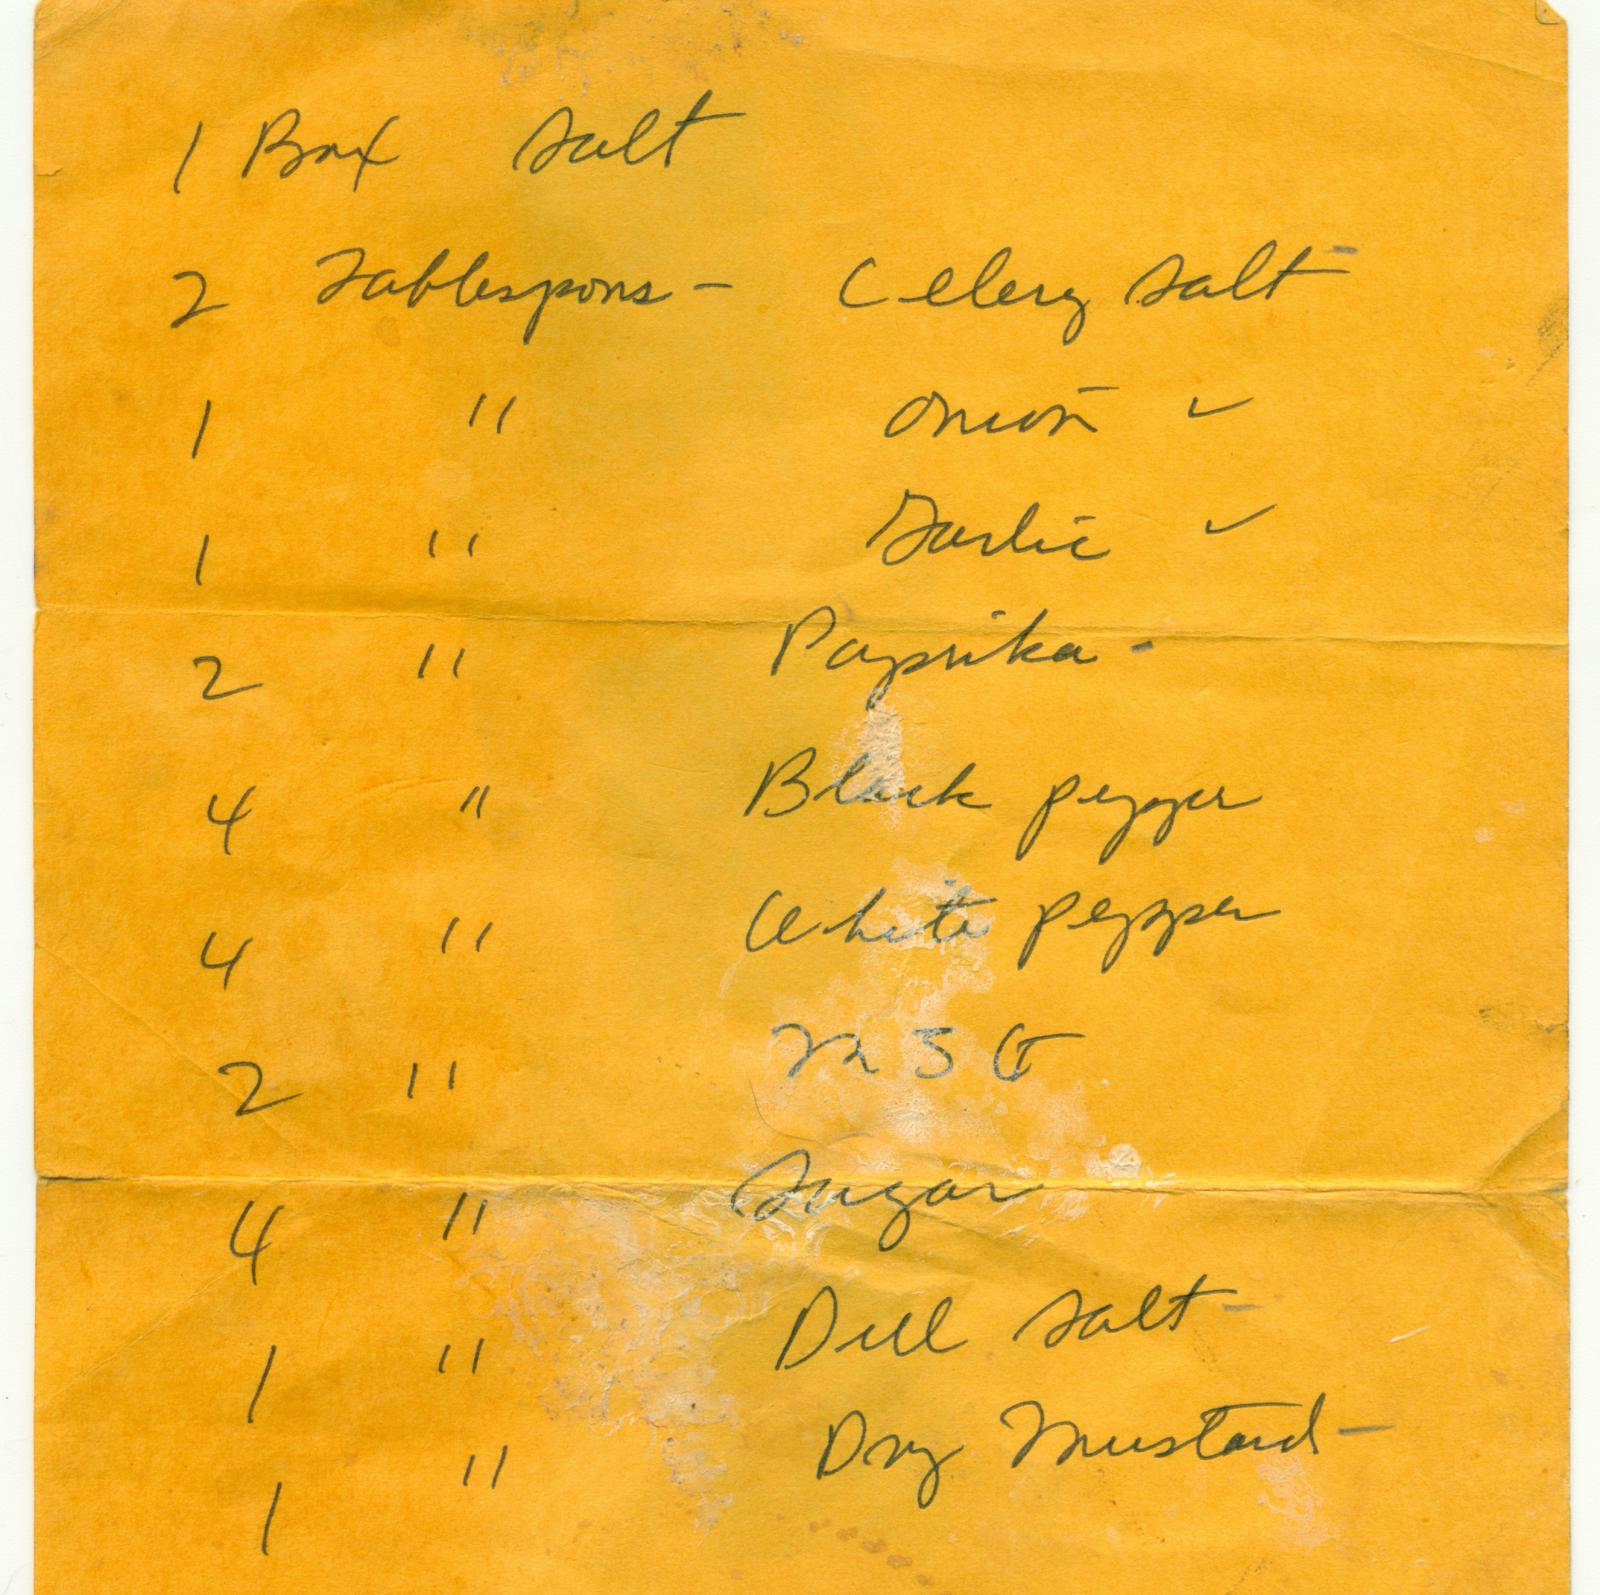 1 Box salt
2 Tablespons - Celery salt -
1 " Onion ✓
1 " Garlic ✓
2 " Paprika -
4 " Black pepper
4 " White pepper
2 " MSG
4 " Sugar
1 " Dill salt -
1 " Dry Mustard -